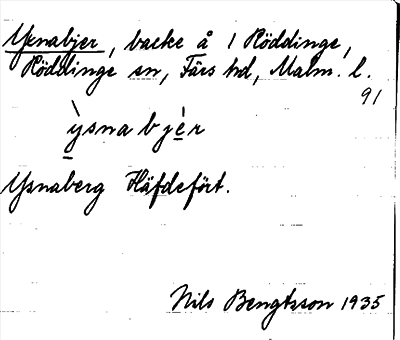 Ysnabjer, backe å 1 Röddinge,
Röddinge sn, Färs hd, Malm. l.
91
ỳsnabjèr
Ysnaberg Häfdefört.
Nils Bengtsson 1935